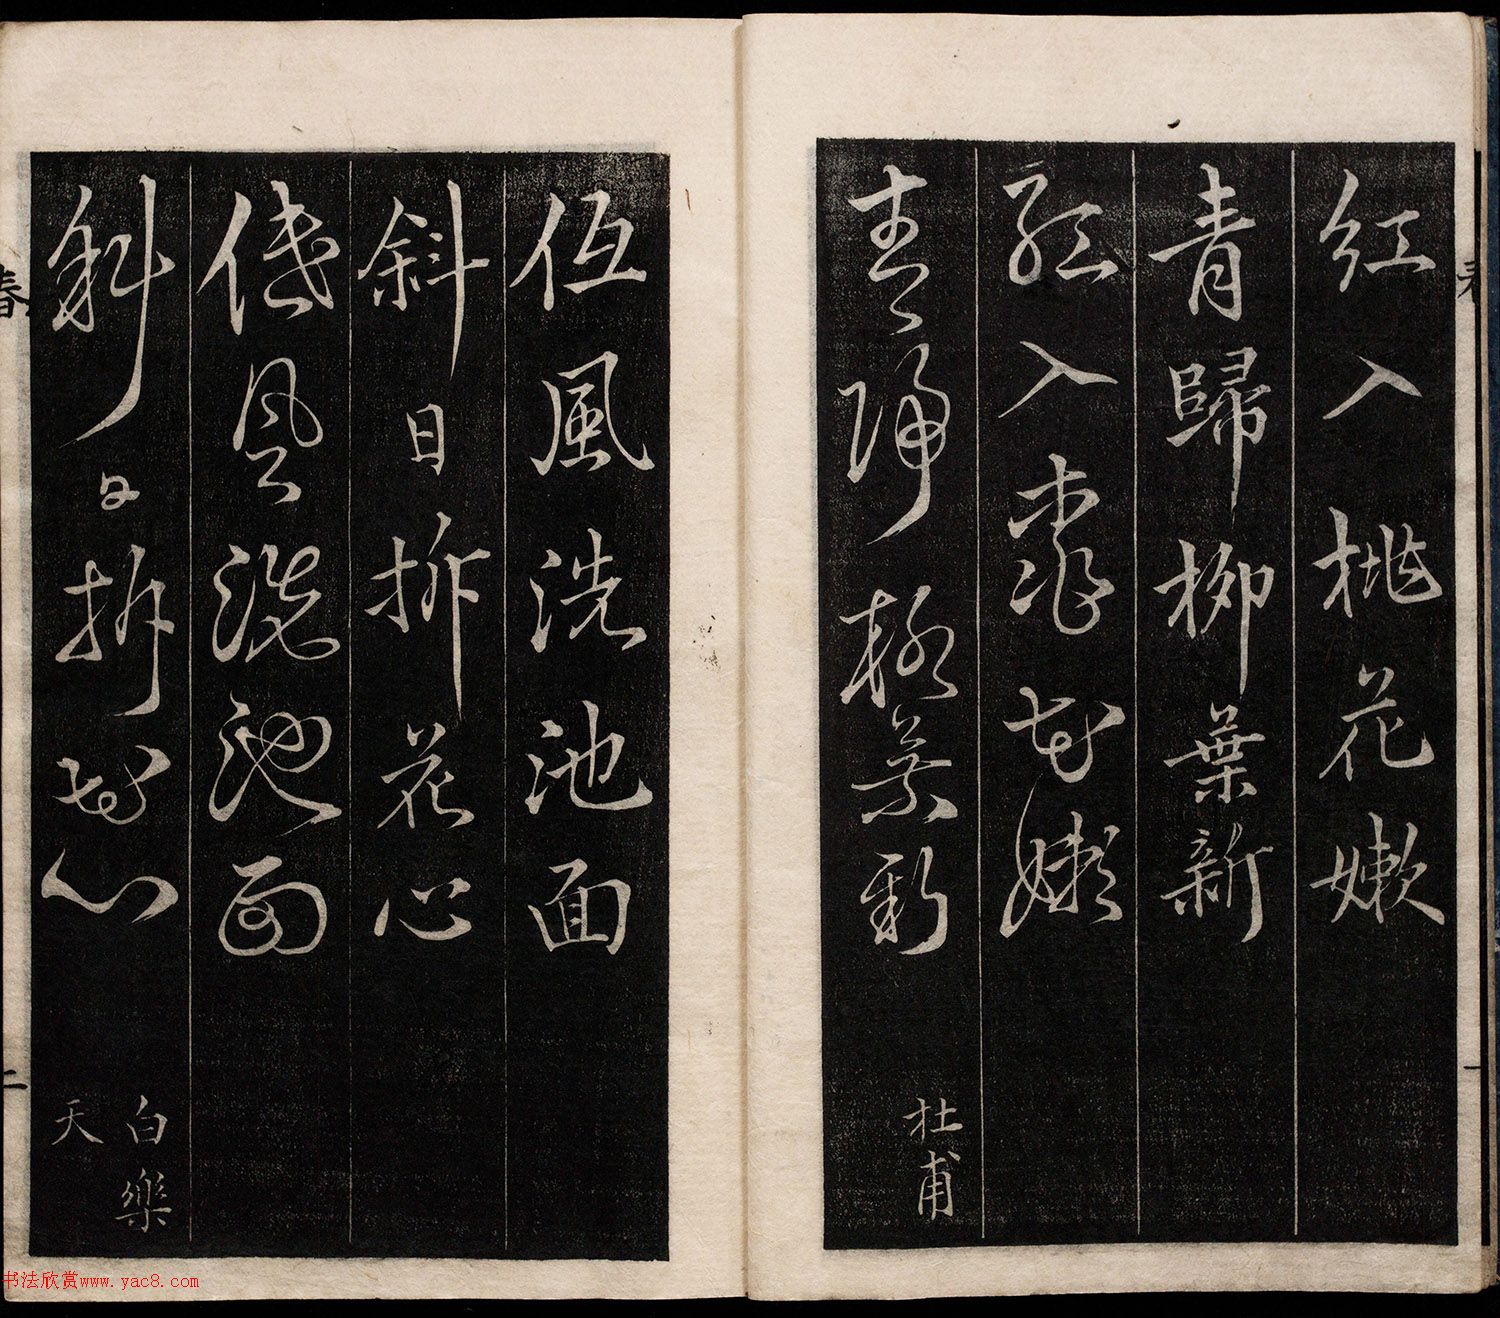 紅入桃花嫩
青歸柳葉新
紅入桃花嫩
青歸柳葉新
杜甫
一
低風洗池面
斜日拆花心
低風洗池面
斜日拆花心
白樂
天
春
二
书法欣赏www.yac8.com